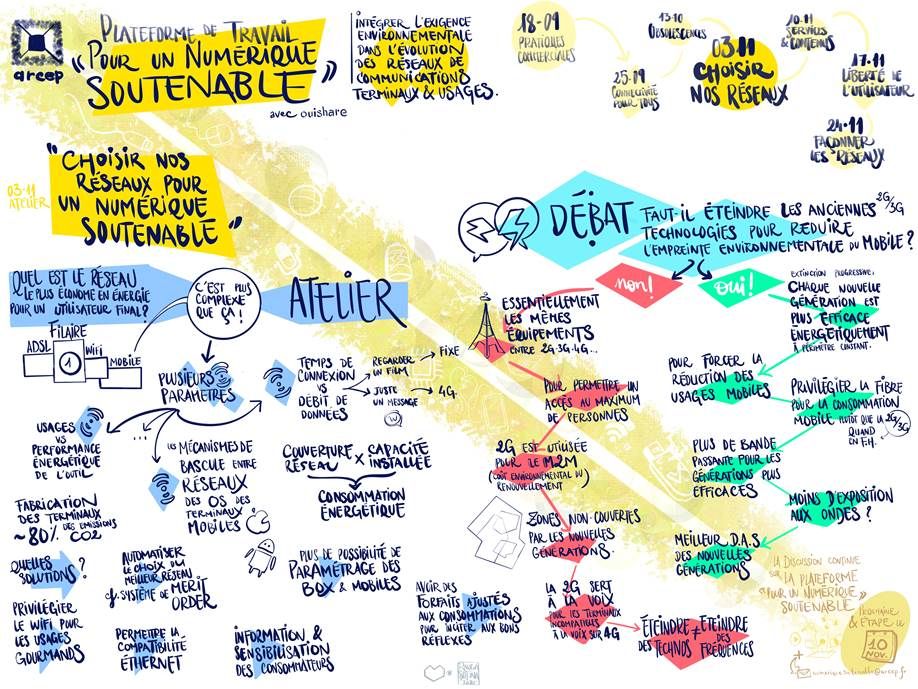 arcep
PLATEFORME DE TRAVAIL
"POUR UN NUMÉRIQUE
SOUTENABLE"
avec ouishare
INTÉGRER L'EXIGENCE
ENVIRONNEMENTALE
DANS L'ÉVOLUTION
DES RÉSEAUX DE
COMMUNICATIONS
TERMINAUX & USAGES.
18-09
PRATIQUES
COMMERCIALES
25-09
CONNECTIVITÉ
POUR TOUS
13-10
OBSOLESCENCES
03-11
CHOISIR
NOS RÉSEAUX
10-11
SERVICES
& CONTENUS
17-11
LIBERTÉ DE
L'UTILISATEUR
24-11
FAÇONNER
LES RÉSEAUX
03-11
ATELIER
"CHOISIR NOS
RÉSEAUX POUR
UN NUMÉRIQUE
SOUTENABLE"
QUEL EST LE RÉSEAU
LE PLUS ÉCONOME EN ÉNERGIE
POUR UN UTILISATEUR FINAL?
C'EST PLUS
COMPLEXE
QUE ÇA!
ATELIER
FILAIRE
ADSL
1
WIFI
MOBILE
PLUSIEURS
PARAMÈTRES
TEMPS DE
CONNEXION
VS
DÉBIT DE
DONNÉES
REGARDER
UN FILM
FIXE
JUSTE
UN MESSAGE
4G
USAGES
VS
PERFORMANCE
ÉNERGÉTIQUE
DE L'OUTIL
...
LES MÉCANISMES DE
BASCULE ENTRE
RÉSEAUX
DES OS DES
TERMINAUX
MOBILES
COUVERTURE RÉSEAU X CAPACITÉ INSTALLÉE
CONSOMMATION
ÉNERGÉTIQUE
FABRICATION
DES TERMINAUX
~80% DES EMISSIONS
CO2
QUELLES
SOLUTIONS?
AUTOMATISER
LE CHOIX DU
MEILLEUR RÉSEAU
cf. SYSTÈME DE MERIT
ORDER
PLUS DE POSSIBILITÉ DE
PARAMÉTRAGE DES
BOX & MOBILES
PRIVILÉGIER
LE WIFI POUR
LES USAGES
GOURMANDS
PERMETTRE LA
COMPATIBILITÉ
ETHERNET
INFORMATION &
SENSIBILISATION
DES CONSOMMATEURS
AVOIR DES
FORFAITS AJUSTÉS
AUX CONSOMMATIONS
POUR INCITER AUX BONS
RÉFLEXES
DÉBAT
FAUT-IL ÉTEINDRE LES ANCIENNES 2G/3G
TECHNOLOGIES POUR RÉDUIRE
L'EMPREINTE ENVIRONNEMENTALE DU MOBILE?
non!
oui!
ESSENTIELLEMENT
LES MÊMES
ÉQUIPEMENTS
ENTRE 2G-3G-4G...
POUR PERMETTRE UN
ACCÈS AU MAXIMUM
DE PERSONNES
2G EST UTILISÉE
POUR LE M2M
(COÛT ENVIRONNEMENTAL DU
RENOUVELLEMENT)
ZONES NON-COUVERTES
PAR LES NOUVELLES
GÉNÉRATIONS.
LA 2G SERT
À LA VOIX
POUR LES TERMINAUX
INCOMPATIBLES
À LA VOIX SUR 4G
ÉTEINDRE DES TECHNOS ≠ ÉTEINDRE DES FRÉQUENCES
EXTINCTION PROGRESSIVE.
CHAQUE NOUVELLE
GÉNÉRATION EST
PLUS EFFICACE
ÉNERGÉTIQUEMENT
À PÉRIMÈTRE CONSTANT.
POUR FORCER LA
RÉDUCTION DES
USAGES MOBILES
PRIVILÉGIER LA FIBRE
POUR LA CONSOMMATION
MOBILE PLUTÔT QUE LA 2G/3G
QUAND
PLUS DE BANDE
PASSANTE POUR LES
GÉNÉRATIONS PLUS
EFFICACES
MOINS D'EXPOSITION
AUX ONDES?
MEILLEUR D.A.S
DES NOUVELLES
GÉNÉRATIONS
LA DISCUSSION CONTINUE
SUR LA PLATEFORME
"POUR UN NUMÉRIQUE
SOUTENABLE"
PROCHAINE
ÉTAPE LE
10
NOV.